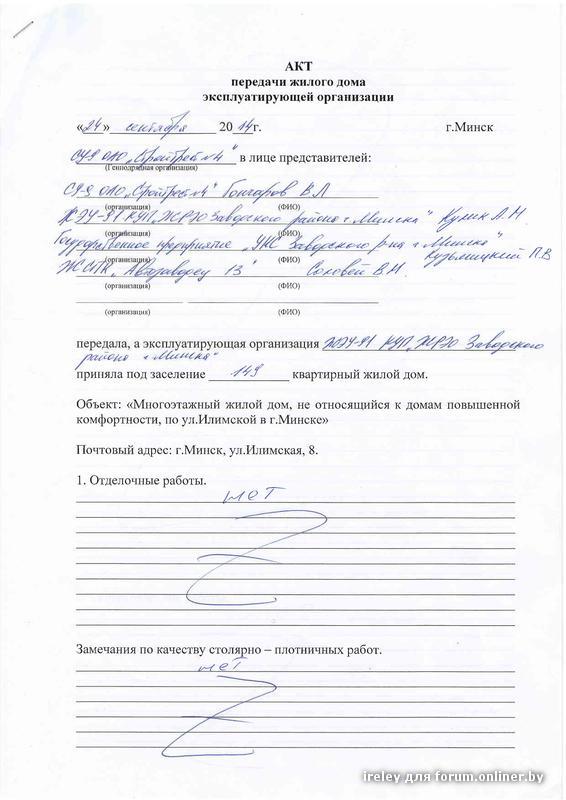 АКТ
передачи жилого дома
эксплуатирующей организации
«24» сентября 2014г. г.Минск
СУ-9 ОАО „Стройтрест №4" в лице представителей:
(Генподрядная организация)
СУ-9 ОАО „Стройтрест №4" Гончаров В.Л
(организация) (ФИО)
ЖЭУ-91 КУП „ЖРЭО Заводского района г.Минска" Кулик А.Н.
(организация) (ФИО)
Государственное предприятие „УКС Заводского р-на г.Минска" Кузьмицкий П.В
(организация) (ФИО)
ЖСПК „Автозаводец 13" Соковей В.Н.
(организация) (ФИО)
(организация) (ФИО)
передала, а эксплуатирующая организация ЖЭУ-91 КУП „ЖРЭО Заводского
района г.Минска"
приняла под заселение 149 квартирный жилой дом.
Объект: «Многоэтажный жилой дом, не относящийся к домам повышенной
комфортности, по ул.Илимской в г.Минске»
Почтовый адрес: г.Минск, ул.Илимская, 8.
1. Отделочные работы.
нет
Замечания по качеству столярно – плотничных работ.
нет
ireley для forum.onliner.by